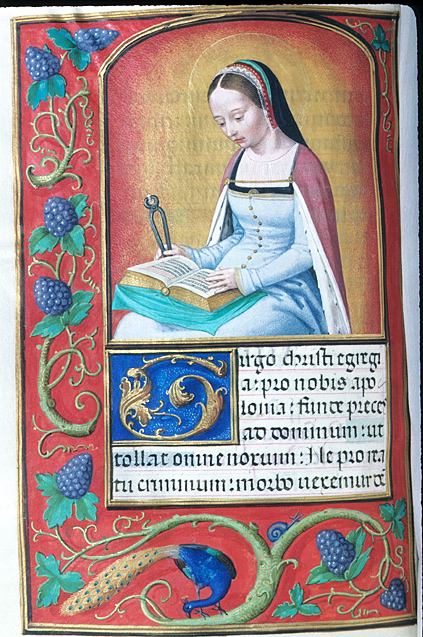 Virgo christi egregi
a: pro nobis apo
lonia: funde prece
ad dominum: ut
tollat omne noxium: Ne pro rea
tu criminum: morbo vexemur de